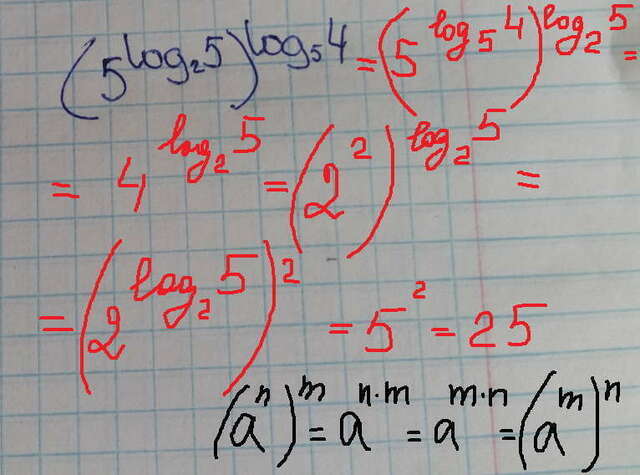 (5^log₂5)^log₅4 = (5^log₅4)^log₂5 =
= 4^log₂5 = (2²)^log₂5 =
= (2^log₂5)² = 5² = 25
(aⁿ)ᵐ = aⁿ·ᵐ = aᵐ·ⁿ = (aᵐ)ⁿ